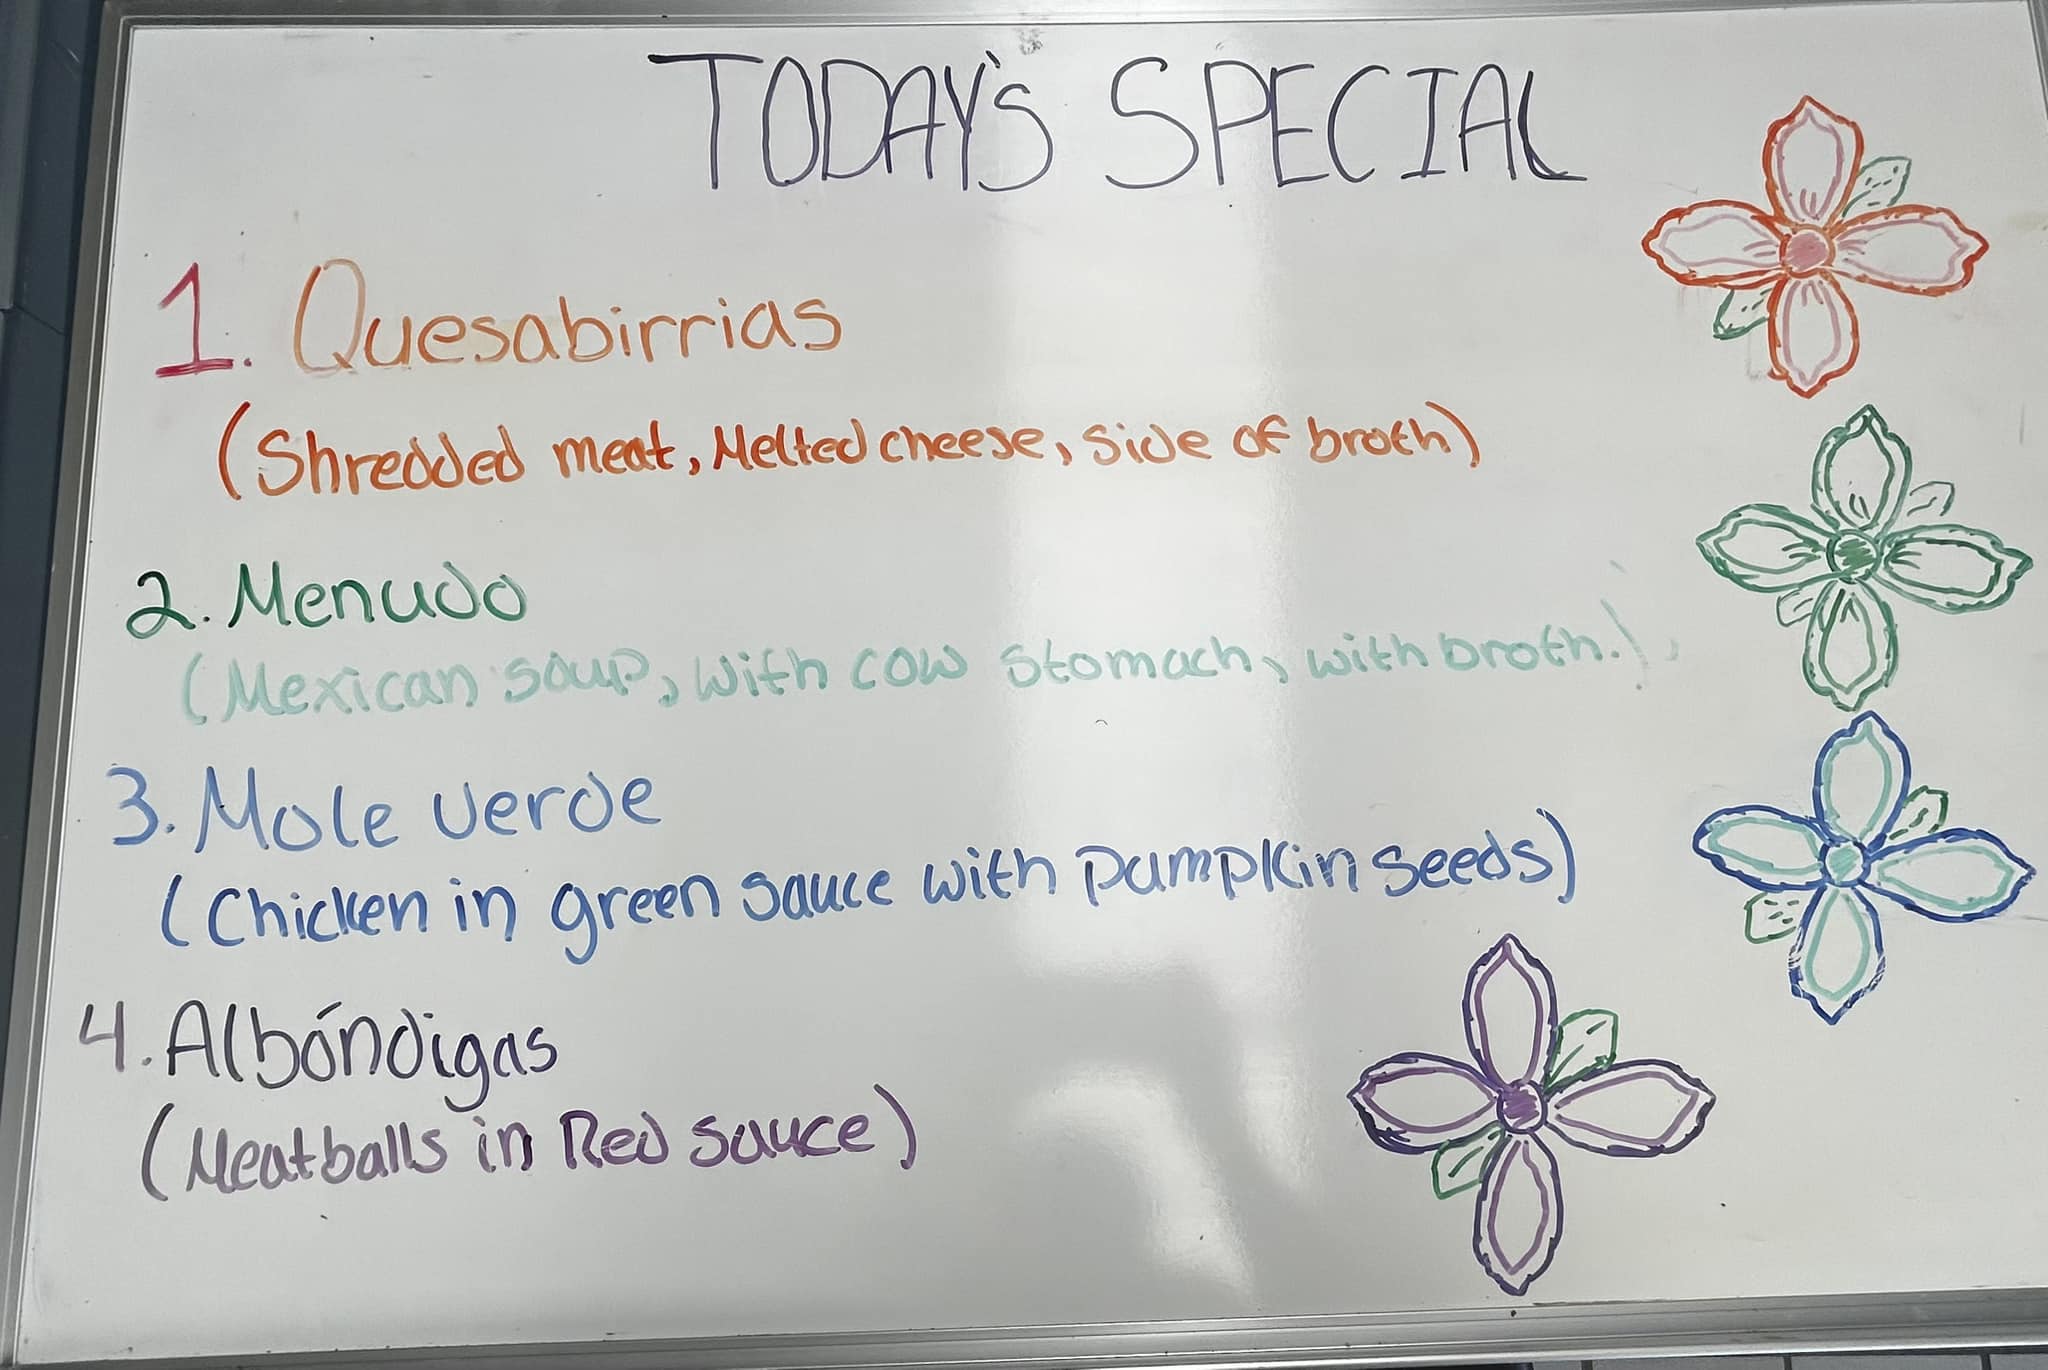 TODAY'S SPECIAL
1. Quesabirrias
(Shredded meat, Melted cheese, side of broth)
2. Menudo
(Mexican soup, with cow stomach, with broth.)
3. Mole verde
(Chicken in green sauce with pumpkin seeds)
4. Albóndigas
(Meatballs in Red sauce)